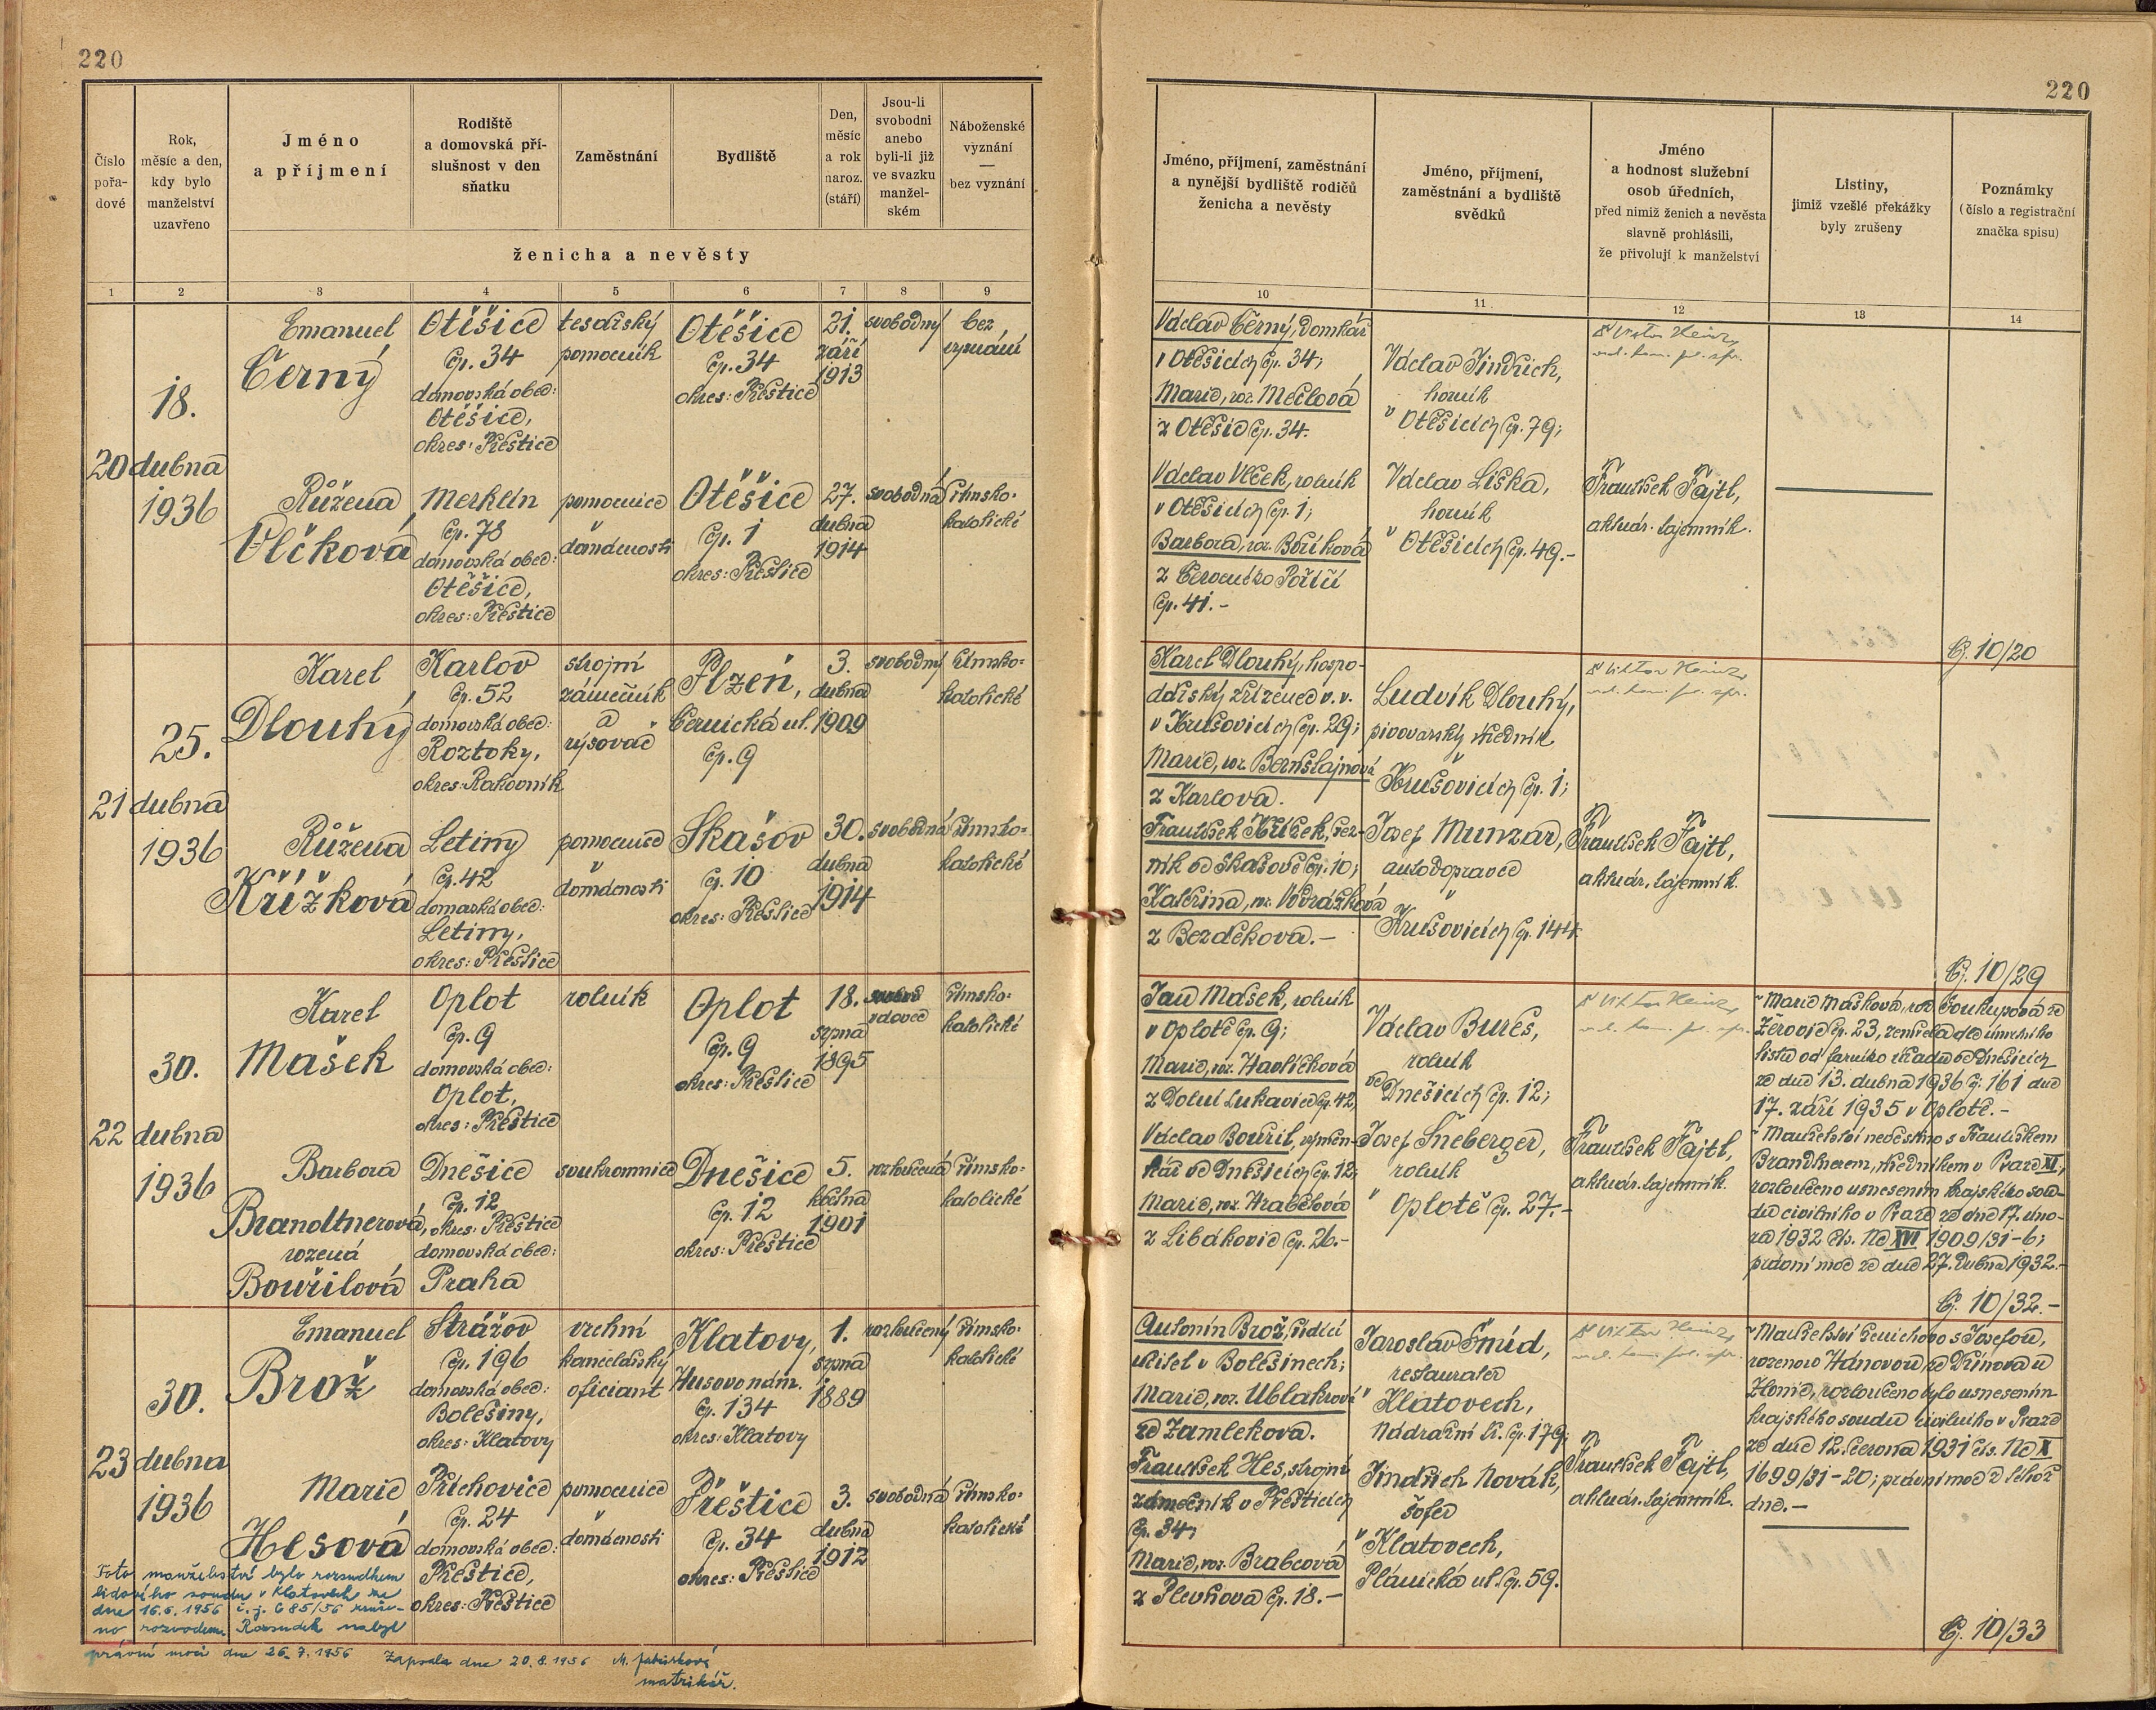 220
220
Číslo
pořa-
dové
Rok,
měsíc a den,
kdy bylo
manželství
uzavřeno
Jméno
a příjmení
Rodiště
a domovská pří-
slušnost v den
sňatku
Zaměstnání
Bydliště
Den,
měsíc
a rok
naroz.
(stáří)
Jsou-li
svobodni
anebo
byli-li již
ve svazku
manžel-
ském
Náboženské
vyznání
—
bez vyznání
ženicha a nevěsty
Jméno, příjmení, zaměstnání
a nynější bydliště rodičů
ženicha a nevěsty
Jméno, příjmení,
zaměstnání a bydliště
svědků
Jméno
a hodnost služební
osob úředních,
před nimiž ženich a nevěsta
slavně prohlásili,
že přivolují k manželství
Listiny,
jimiž vzešlé překážky
byly zrušeny
Poznámky
(číslo a registrační
značka spisu)
1 2 3 4 5 6 7 8 9
10 11 12 13 14
20
18.
dubna
1936
Emanuel
Černý
Otěšice
čp. 34
domovská obec:
Otěšice,
okres: Přeštice
tesařský
pomocník
Otěšice
čp. 34
okres: Přeštice
21.
září
1913
svobodný
bez
vyznání
Růžena
Vlčková
Merklín
čp. 78
domovská obec:
Otěšice,
okres: Přeštice
pomocnice
v
domácnosti
Otěšice
čp. 1
okres: Přeštice
27.
dubna
1914
svobodná
římsko-
katolické
Václav Černý, domkář
v Otěšicích čp. 34;
Marie, roz. Mečlová
z Otěšic čp. 34.
Václav Vlček, rolník
v Otěšicích čp. 1;
Barbora, roz. Boříková
z Červeného Poříčí
čp. 41.-
Václav Jindřich,
horník
v Otěšicích čp. 79;
Václav Liška,
horník
v Otěšicích čp. 49.-
Dr Viktor Heinz
František Fajtl,
aktuár. tajemník.
Čj. 10/20
21
25.
dubna
1936
Karel
Dlouhý
Karlov
čp. 52
domovská obec:
Roztoky,
okres: Rakovník
strojní
zámečník
a
rýsovač
Plzeň,
Černická ul.
čp. 9
3.
dubna
1909
svobodný
římsko-
katolické
Růžena
Křížková
Letiny
čp. 42
domovská obec:
Letiny,
okres: Přeštice
pomocnice
v
domácnosti
Skašov
čp. 10
okres: Přeštice
30.
dubna
1914
svobodná
římsko-
katolické
Karel Dlouhý, hospo-
dářský zřízenec v. v.
v Krušovicích čp. 29;
Marie, roz. Bernštajnová
z Karlova.
František Křížek, řez-
ník ve Skašově čp. 10;
Kateřina, roz. Vodrážková
z Bezděkova.-
Ludvík Dlouhý,
pivovarský úředník
v
Krušovicích čp. 1;
Josef Munzar,
autodopravce
v
Krušovicích čp. 144.
Dr Viktor Heinz
František Fajtl,
aktuár. tajemník.
Čj. 10/29
22
30.
dubna
1936
Karel
Mašek
Oplot
čp. 9
domovská obec:
Oplot,
okres: Přeštice
rolník
Oplot
čp. 9
okres: Přeštice
18.
srpna
1895
vdovec
římsko-
katolické
Barbora
Brandtnerová,
rozená
Bouřilová
Dnešice
čp. 12
okres: Přeštice
domovská obec:
Praha
soukromnice
Dnešice
čp. 12
okres: Přeštice
5.
května
1901
rozloučená
římsko-
katolické
Jan Mašek, rolník
v Oplotě čp. 9;
Marie, roz. Havlíčková
z Dolní Lukavice čp. 42,
Václav Bouřil, výměn-
kář ve Dnešicích čp. 12;
Marie, roz. Hrabětová
z Libákovic čp. 26.-
Václav Bureš,
rolník
ve
Dnešicích čp. 12;
Josef Šneberger,
rolník
v Oplotě čp. 27.-
Dr Viktor Heinz
František Fajtl,
aktuár. tajemník.
Marie Mašková, roz. Soukupová ze
Žerovic čp. 23, zemřela dle úmrtního
listu od farního úřadu ve Dnešicích
ze dne 13. dubna 1936 čj. 161 dne
17. září 1935 v Oplotě.-
Manželství nevěstino s Františkem
Brandtnerem, úředníkem v Praze XI,
rozloučeno usnesením krajského sou-
du civilního v Praze ze dne 17. úno-
ra 1932 čís. Nc XVI 1909/31-6;
právní moc ze dne 27. dubna 1932.-
Čj. 10/32.-
23
30.
dubna
1936
Emanuel
Brož
Strážov
čp. 196
domovská obec:
Bolešiny,
okres: Klatovy
vrchní
kancelářský
oficiant
Klatovy,
Husovo nám.
čp. 134
okres: Klatovy
1.
srpna
1889
rozloučený
římsko-
katolické
Marie
Hesová
Příchovice
čp. 24
domovská obec:
Přeštice,
okres: Přeštice
pomocnice
v
domácnosti
Přeštice
čp. 34
okres: Přeštice
3.
dubna
1912
svobodná
římsko-
katolické
Antonín Brož, řídící
učitel v Bolešinech;
Marie, roz. Ublakrová
ze Zamlekova.
František Hes, strojní
zámečník v Přešticích
čp. 34;
Marie, roz. Brabcová
z Plevňova čp. 18.-
Jaroslav Šmíd,
restauratér
v Klatovech,
Nádražní tř. čp. 179;
Jindřich Novák,
šofér
v Klatovech,
Plánická ul. čp. 59.
Dr Viktor Heinz
František Fajtl,
aktuár. tajemník.
Manželství ženichovo s Josefou,
rozenou Hánovou, ze Dřínova u
Zlonic, rozloučeno bylo usnesením
krajského soudu civilního v Praze
ze dne 12. června 1931 čís. Nc X
1699/31-20; právní moc z téhož
dne.-
Čj. 10/33
Toto manželství bylo rozsudkem
lidového soudu v Klatovech ze
dne 16.6.1956 č. j. C 85/56 zruše-
no rozvodem. Rozsudek nabyl
právní moci dne 26.7.1956 Zapsala dne 20.8.1956
matrikář.